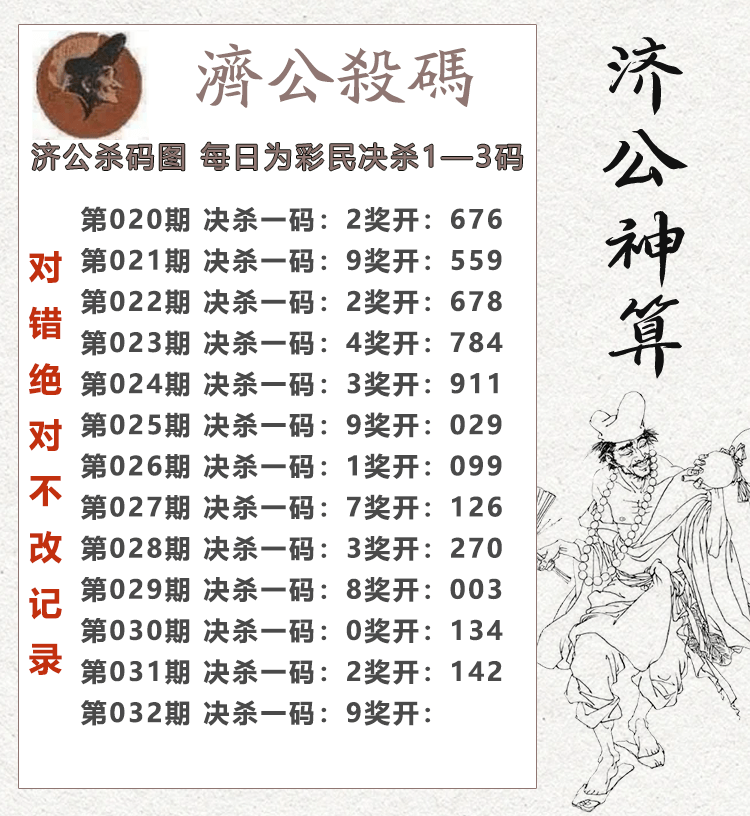 濟公殺碼
济公杀码图 每日为彩民决杀1—3码
第020期 决杀一码：2奖开：676
第021期 决杀一码：9奖开：559
第022期 决杀一码：2奖开：678
第023期 决杀一码：4奖开：784
第024期 决杀一码：3奖开：911
第025期 决杀一码：9奖开：029
第026期 决杀一码：1奖开：099
第027期 决杀一码：7奖开：126
第028期 决杀一码：3奖开：270
第029期 决杀一码：8奖开：003
第030期 决杀一码：0奖开：134
第031期 决杀一码：2奖开：142
第032期 决杀一码：9奖开：
对错绝对不改记录
济公神算